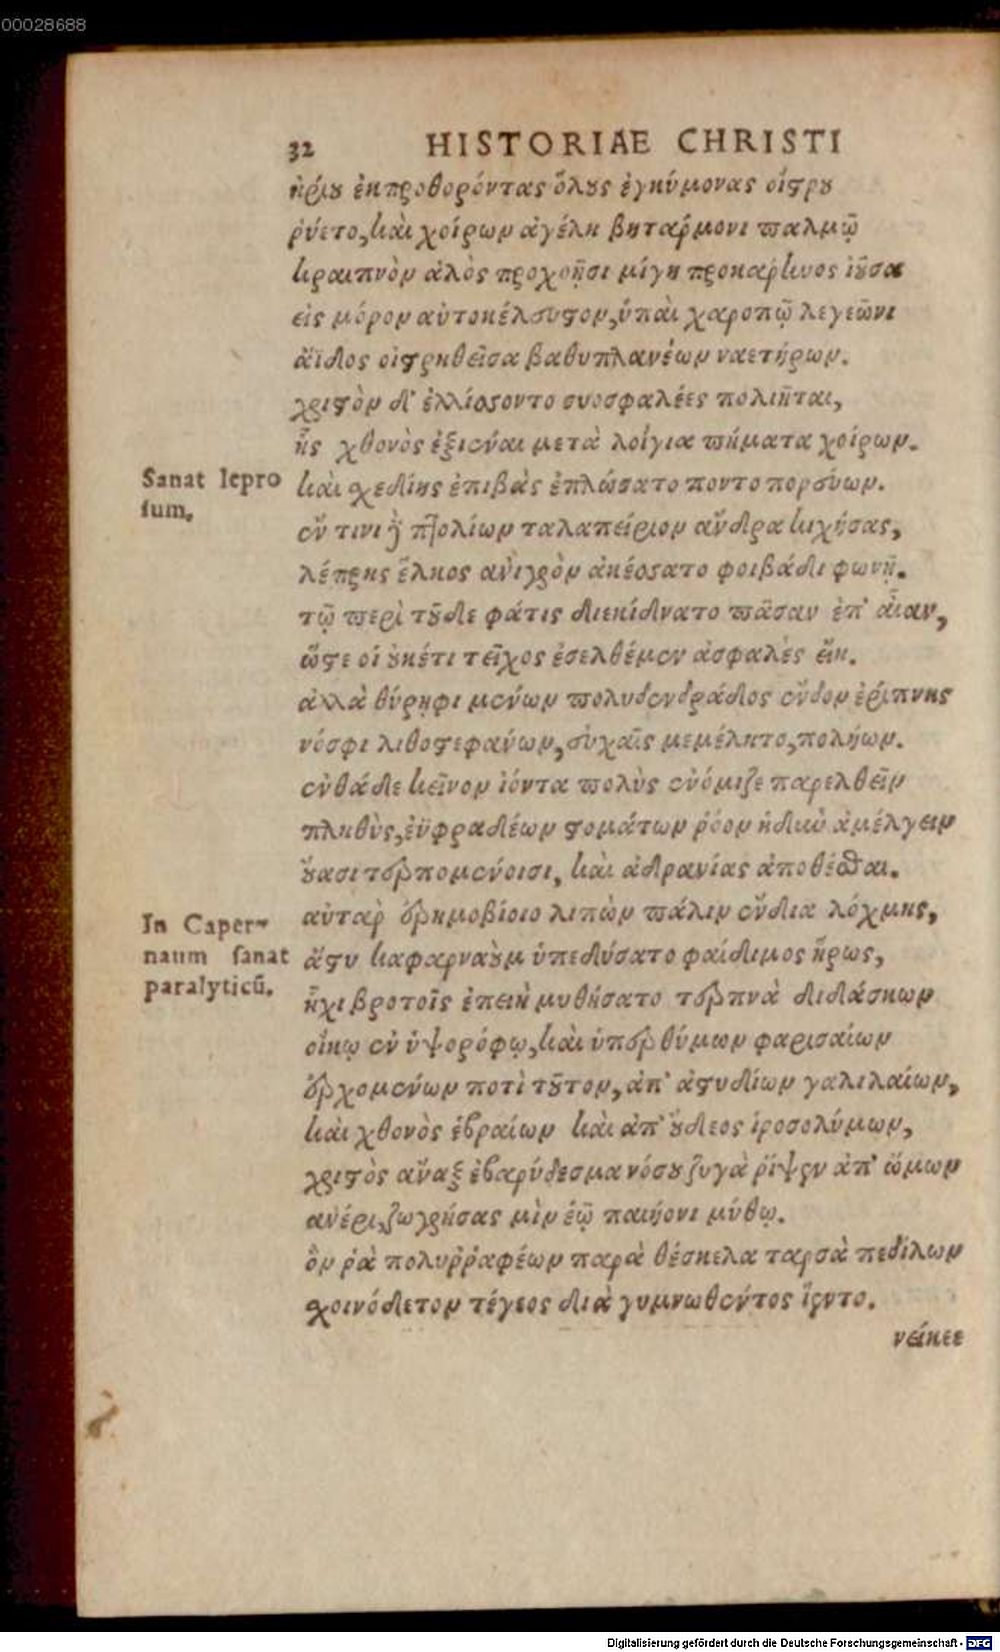 00028688
32 HISTORIAE CHRISTI
ἠρίου ἐκπροθορόντας ὅλους ἐγκύμονας οἴστρου
ῥύετο, καὶ χοίρων ἀγέλη βητάρμονι παλμῷ
κραιπνὸν ἁλὸς προχοῇσι μίγη προκάρηνος ἰοῦσα
εἰς μόρον αὐτοκέλευστον, ὑπαὶ χαροπῷ λεγεῶνι
ἄϊδος οἰστρηθεῖσα βαθυπλανέων ναετήρων.
χριστὸν δ' ἐλλίσσοντο συοσφαλέες πολιῆται,
ἧς χθονὸς ἐξιέναι μετὰ λοίγια πήματα χοίρων.
Sanat lepro
sum.
καὶ σχεδίης ἐπιβὰς ἐπλώσατο ποντοπορεύων.
ἔν τινι δὲ πτολίων ταλαπείριον ἄνδρα κιχήσας,
λέπρης ἕλκος ἀνιγρὸν ἀκέσσατο φοιβάδι φωνῇ.
τῷ περὶ τοῦδε φάτις διεκίδνατο πᾶσαν ἐπ' αἶαν,
ὥστε οἱ οὐκέτι τεῖχος ἐσελθέμεν ἀσφαλὲς εἴη.
ἀλλὰ θύρηφι μένων πολυδενδράδος ἔνδον ἐρίπνης
νόσφι λιθοστεφάνων, εὐχαῖς μεμέλητο, πολήων.
ἐνθάδε κεῖνον ἰόντα πολὺς ἐνόμιζε παρελθεῖν
πληθὺς, ἐϋφραδέων στομάτων ῥόον ἡδὺν ἀμέλγειν
οὔασι τερπομένοισι, καὶ ἀδρανίας ἀποθέσθαι.
In Caper-
naum sanat
paralyticũ.
αὐτὰρ ἐρημοβίοιο λιπὼν πάλιν ἔνδια λόχμης,
ἄστυ καφαρναοὺμ ὑπεδύσατο φαίδιμος ἥρως,
ἧχι βροτοῖς ἐπειὴ μυθήσατο τερπνὰ διδάσκων
οἴκῳ ἐν ὑψορόφῳ, καὶ ὑπερθύμων φαρισαίων
ἐρχομένων ποτὶ τοῦτον, ἀπ' ἀστυδίων γαλιλαίων,
καὶ χθονὸς ἑβραίων καὶ ἀπ' οὔδεος ἱροσολύμων,
χριστὸς ἄναξ ἐβαρύδεσμα νόσου ζυγὰ ῥῖψεν ἀπ' ὤμων
ἀνέρι, ζωγρήσας μὶν ἑῷ παιήονι μύθῳ.
ὃν ῥὰ πολυῤῥαφέων παρὰ θέσκελα ταρσὰ πεδίλων
σχοινόδετον τέγεος διὰ γυμνωθέντος ἵεντο.
νείκεε
Digitalisierung gefördert durch die Deutsche Forschungsgemeinschaft - DFG